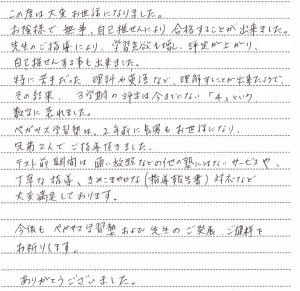 この度は大変お世話になりました。
お陰様で無事、自己推せんにより合格することが出来ました。
先生のご指導により、学習意欲も増し、評定が上がり、
自己推せんする事も出来ました。
特に苦手だった理科や英語など、理解することが出来たようで、
その結果、3学期の評定は今までにない「4」という
数字に表れました。
ペガサス学習塾は、2年前に長男もお世話になり、
兄弟2人でご指導頂きました。
テスト前期間は通い放題などの他の塾にはないサービスや、
丁寧な指導、きめこまやかな(指導報告書)対応など
大変満足しております。
今後もペガサス学習塾および先生のご発展、ご健勝を
お祈りします。
ありがとうございました。